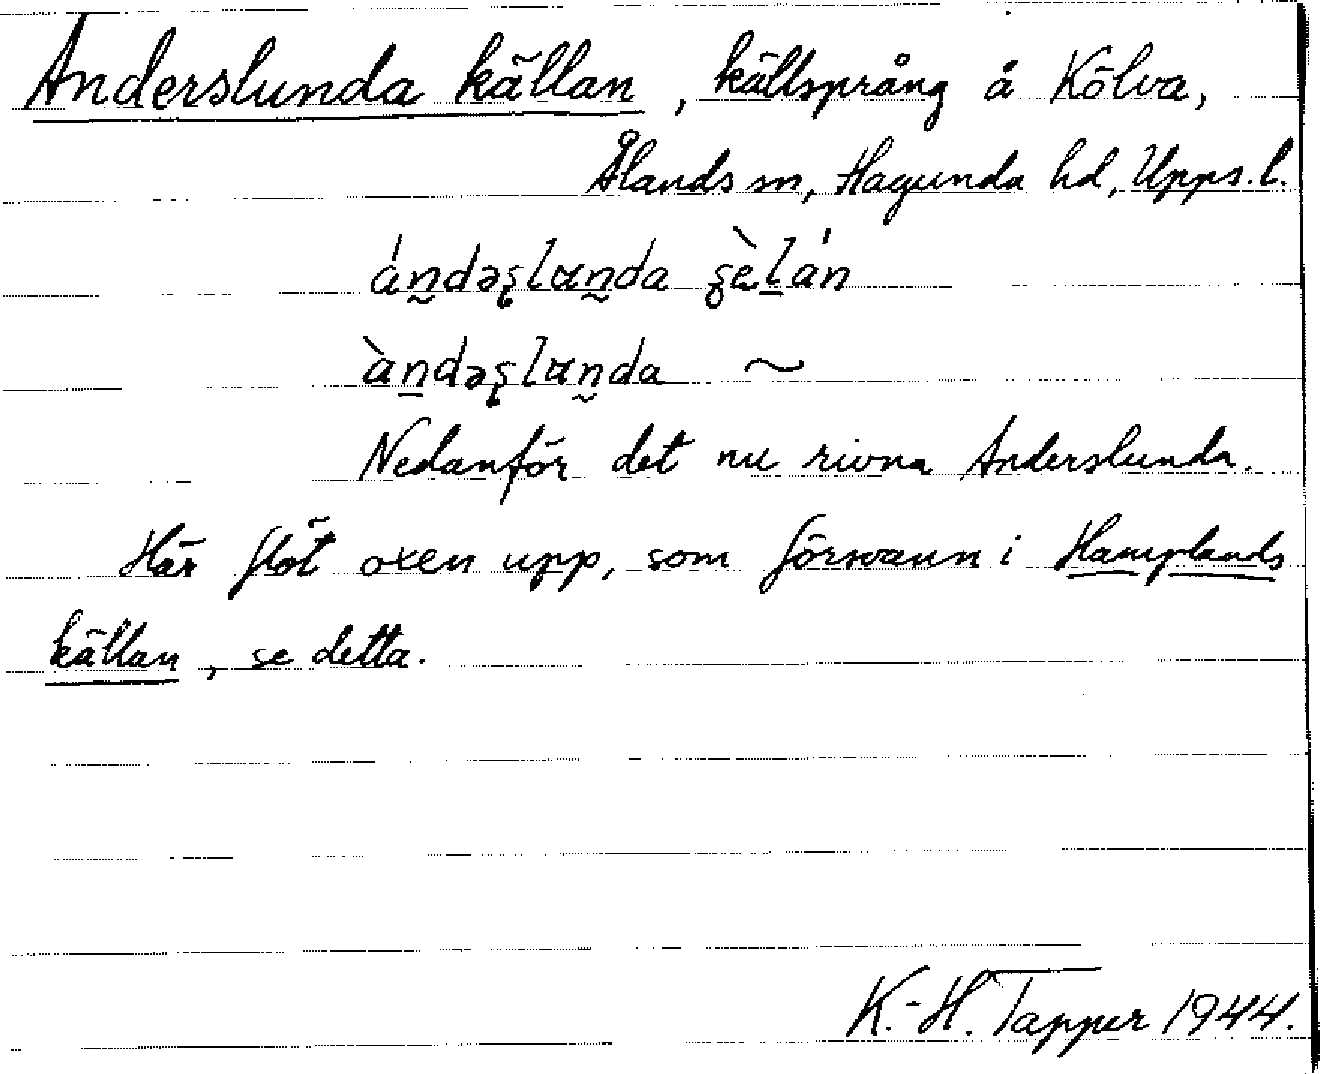 Anderslunda källan, källsprång å Kölva,
Ålands sn, Hagunda hd, Upps. l.
ándəʂlanda ʂèlán
àndəʂlanda ~
Nedanför det nu rivna Anderslunda.
Här flöt oxen upp, som försvann i Hamplands
källan, se detta.
K.-H. Tapper 1944.